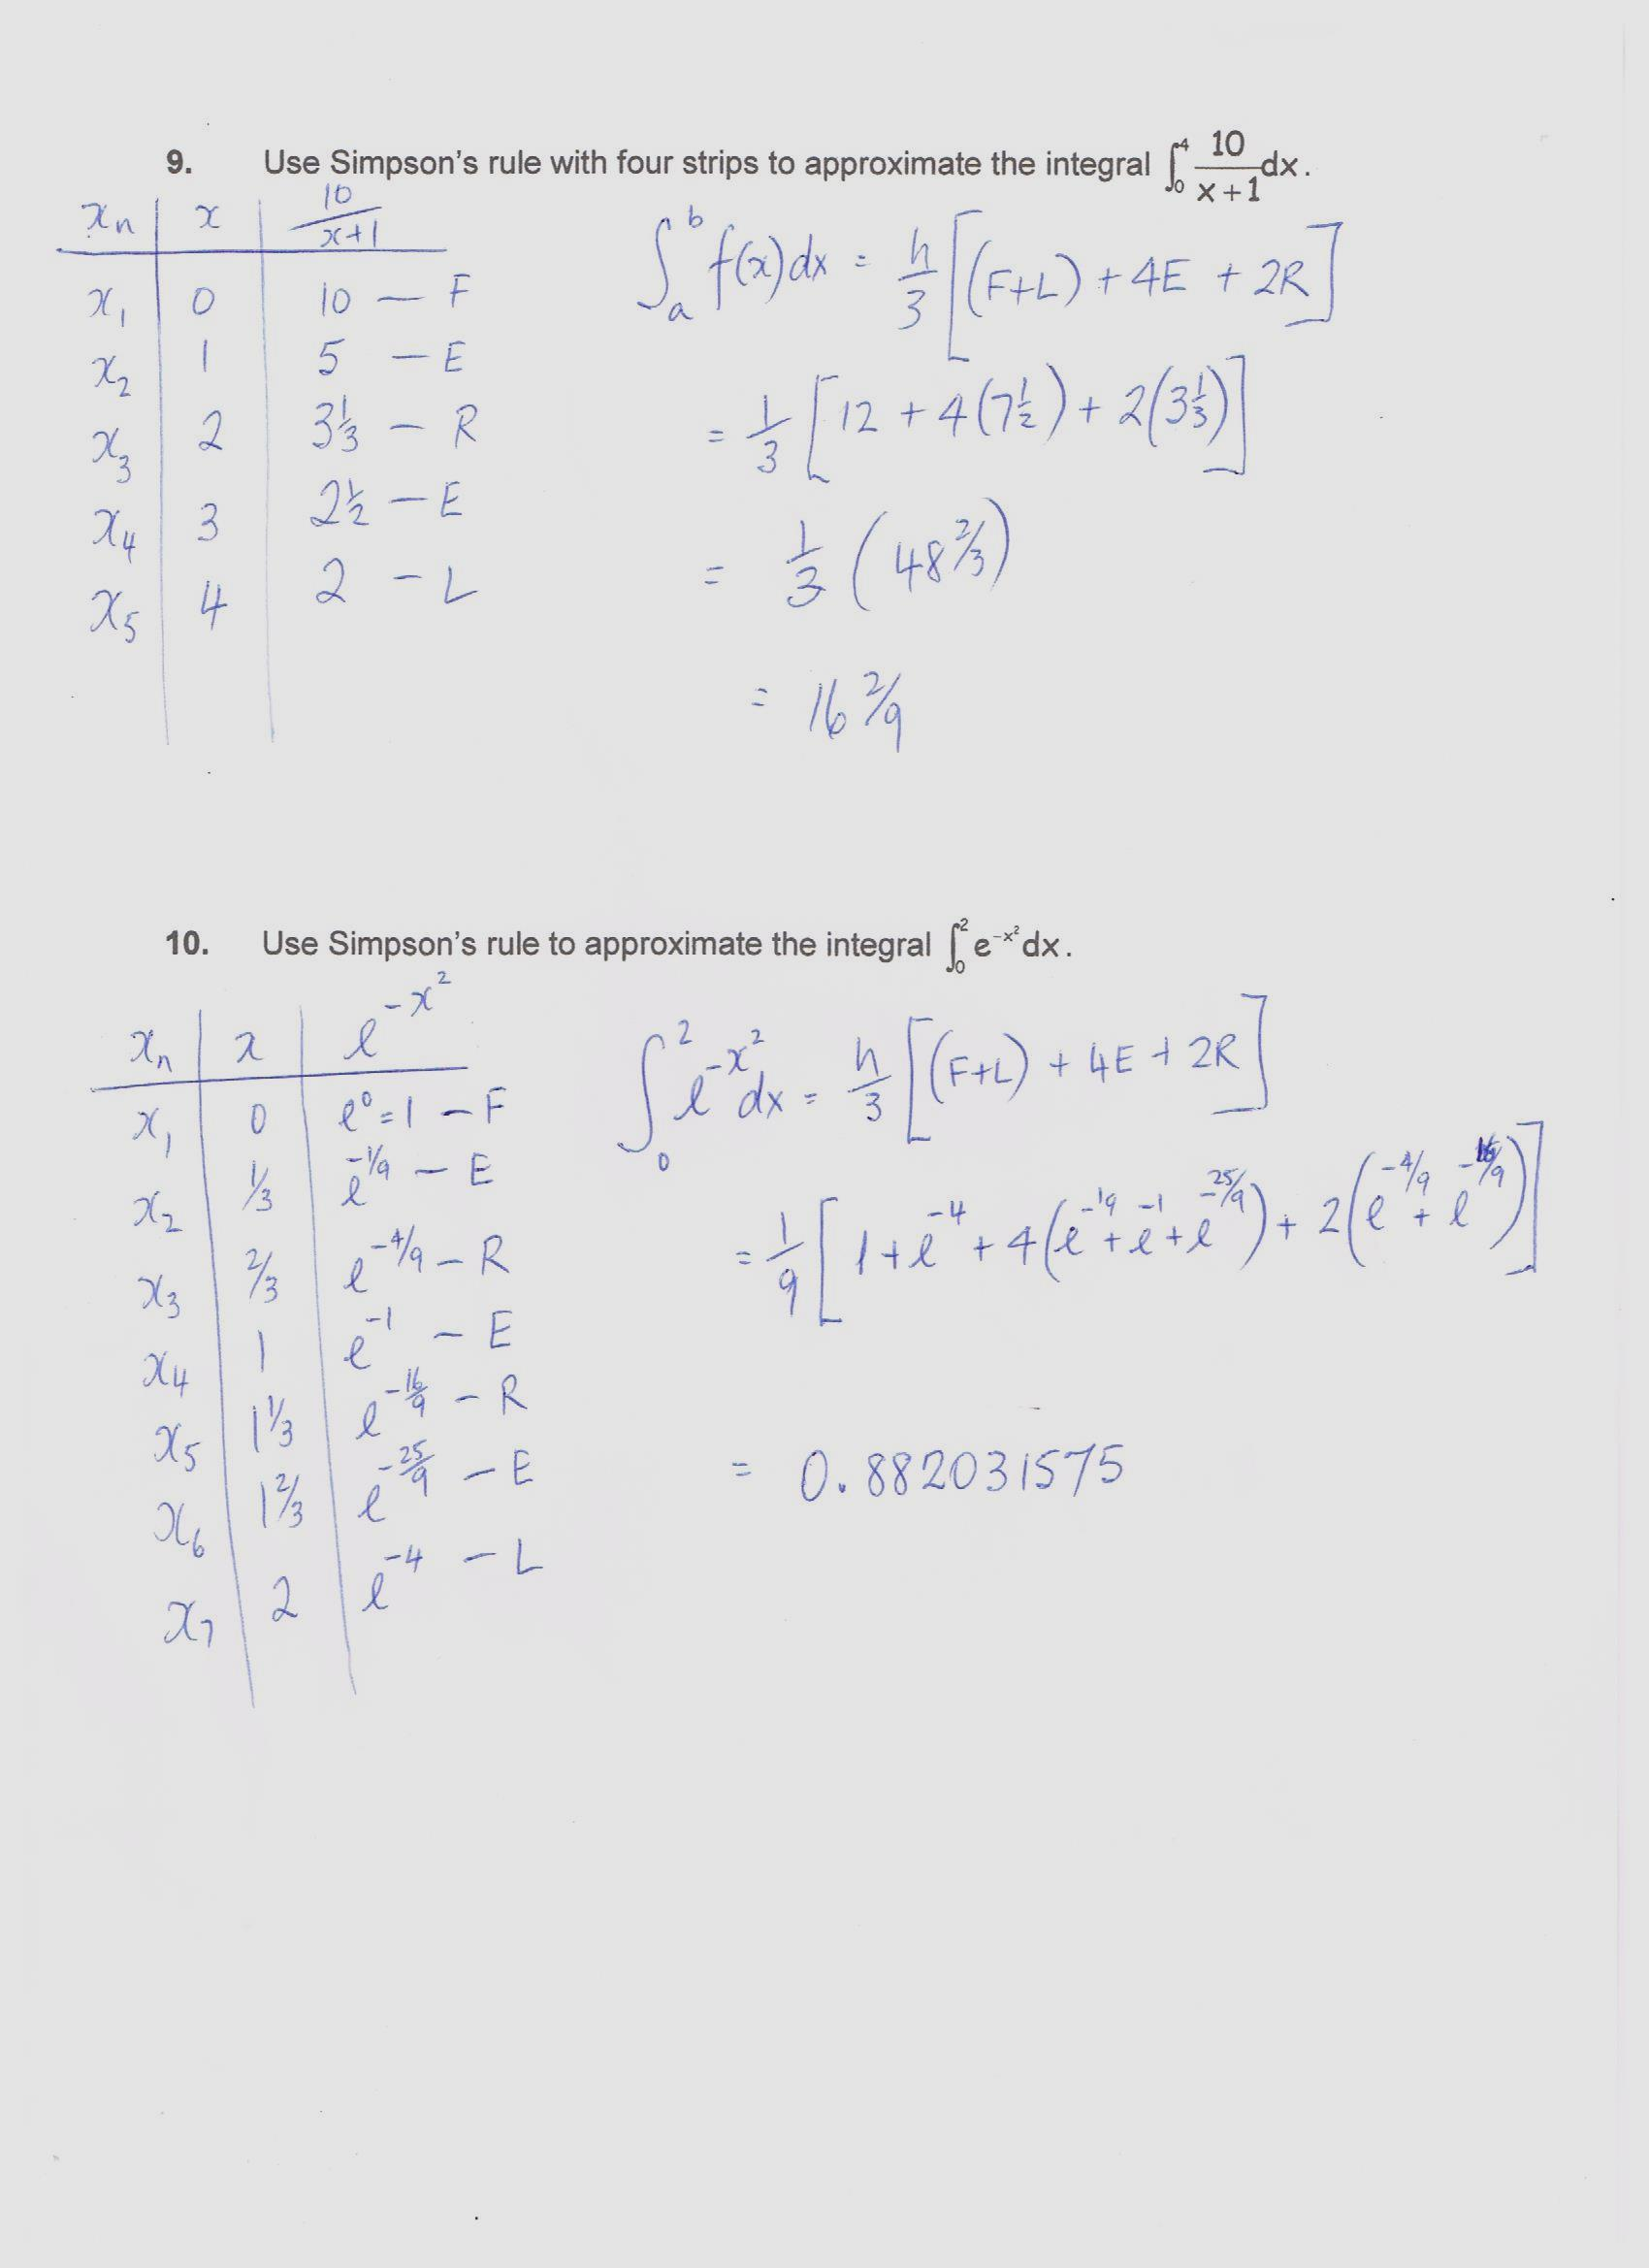 9. Use Simpson's rule with four strips to approximate the integral ∫₀⁴ 10/(x+1) dx.
xₙ | x | 10/(x+1)
x₁ 0 10 — F
x₂ 1 5 — E
x₃ 2 3⅓ — R
x₄ 3 2½ — E
x₅ 4 2 — L
∫ₐᵇ f(x)dx = h/3 [(F+L) + 4E + 2R]
= 1/3 [12 + 4(7½) + 2(3⅓)]
= 1/3 (48 2/3)
= 16 2/9
10. Use Simpson's rule to approximate the integral ∫₀² e^(-x²) dx.
xₙ | x | e^(-x²)
x₁ 0 e⁰ = 1 — F
x₂ 1/3 e^(-1/9) — E
x₃ 2/3 e^(-4/9) — R
x₄ 1 e^(-1) — E
x₅ 1 1/3 e^(-16/9) — R
x₆ 1 2/3 e^(-25/9) — E
x₇ 2 e^(-4) — L
∫₀² e^(-x²) dx = h/3 [(F+L) + 4E + 2R]
= 1/9 [1 + e^(-4) + 4(e^(-1/9) + e^(-1) + e^(-25/9)) + 2(e^(-4/9) + e^(-16/9))]
= 0.882031575